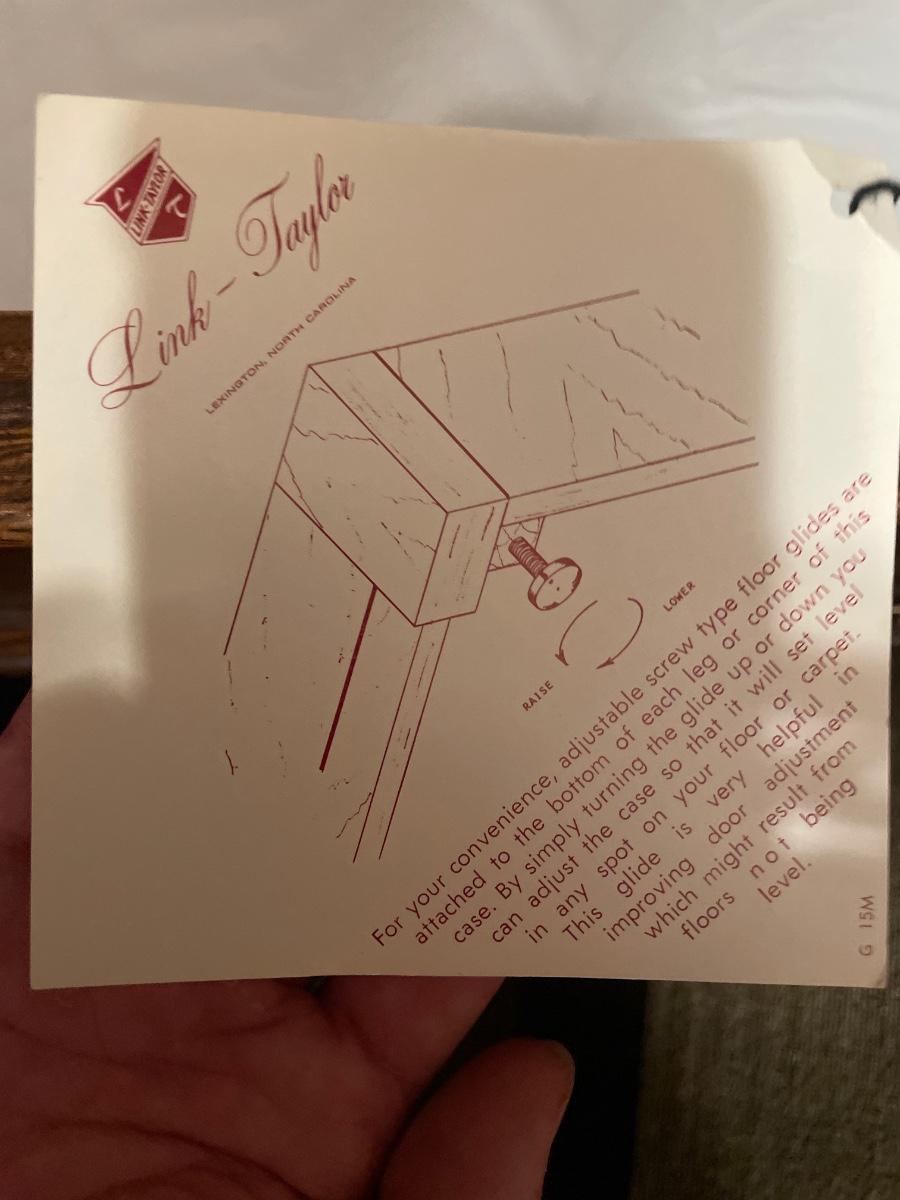 L
LINK-TAYLOR
T
Link-Taylor
LEXINGTON, NORTH CAROLINA
LOWER
RAISE
For your convenience, adjustable screw type floor glides are
attached to the bottom of each leg or corner of this
case. By simply turning the glide up or down you
can adjust the case so that it will set level
in any spot on your floor or carpet.
This glide is very helpful in
improving door adjustment
which might result from
floors not being
level.
G 15M